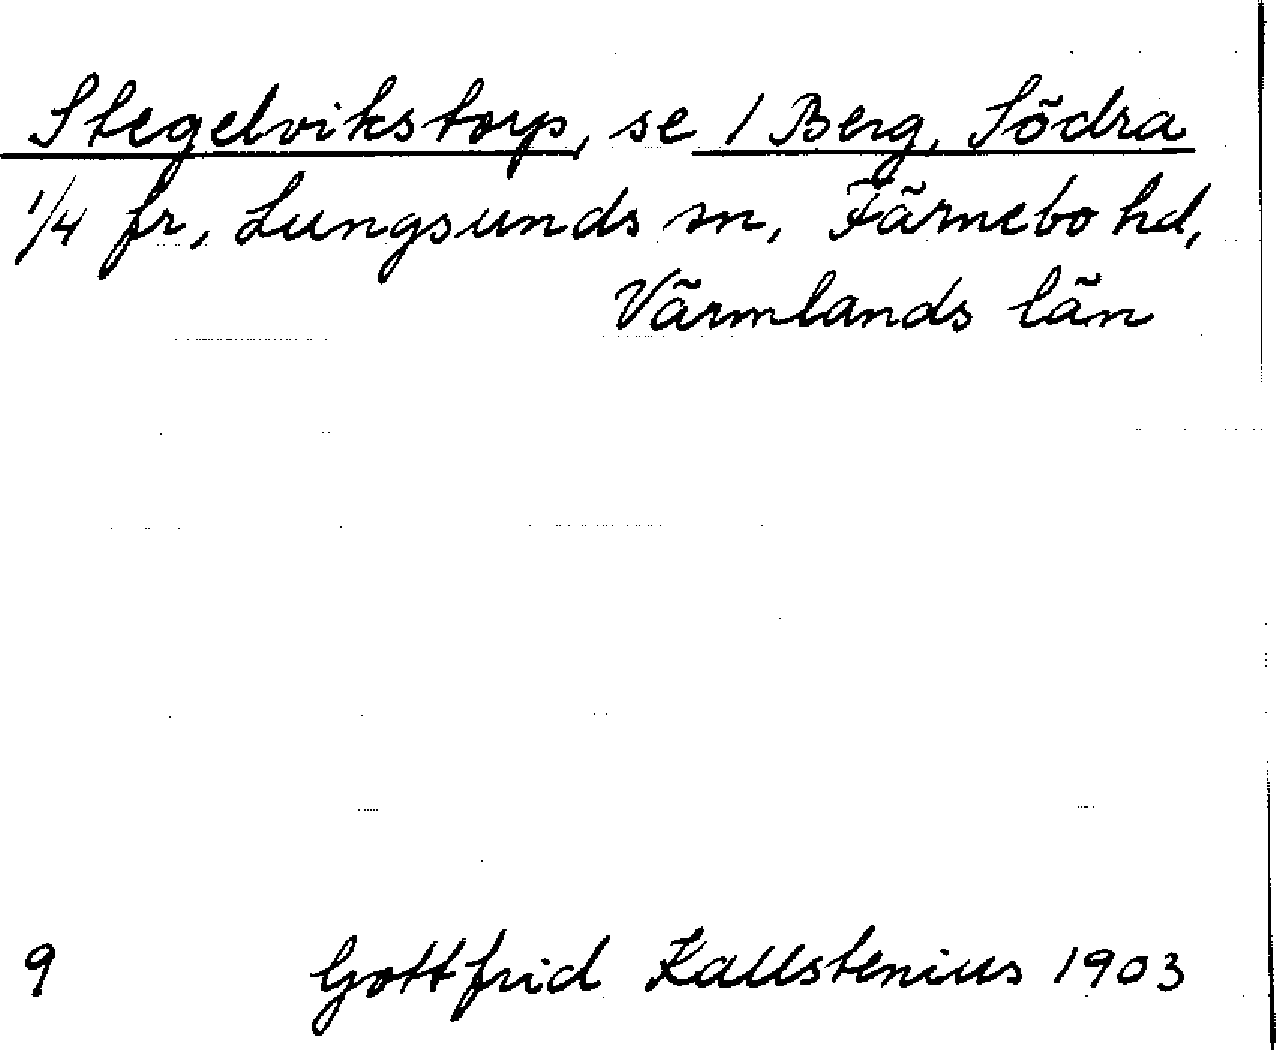 Stegelvikstorp, se 1 Berg, Södra
1/4 fr, Lungsunds sn, Färnebo hd,
Värmlands län
9 Gottfrid Kallstenius 1903